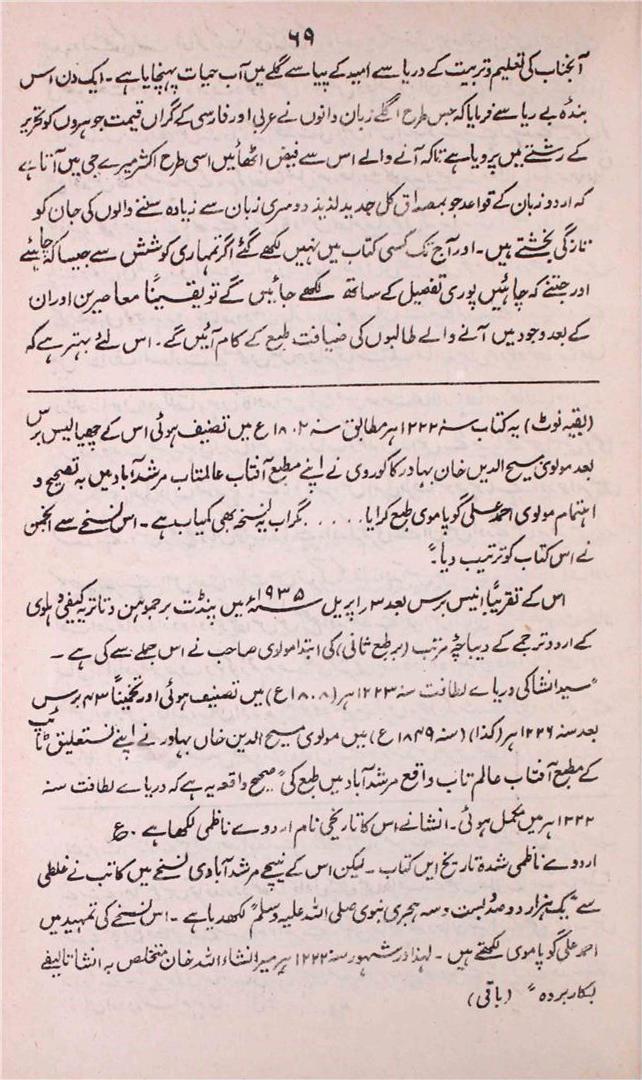 ۶۹
آنجناب کی تعلیم و تربیت کے دریا سے امید کے پیاسے گلے میں آب حیات پہنچایا ہے۔ ایک دن اس
بندۂ بے ریا سے فرمایا کہ جس طرح اگلے زبان دانوں نے عربی اور فارسی کے گراں قیمت جوہروں کو تحریر
کے رشتے میں پرویا ہے تاکہ آنے والے اس سے فیض اٹھائیں اسی طرح اکثر میرے جی میں آتا ہے
کہ اردو زبان کے قواعد جو بمصداق کل جدید لذیذ دوسری زبان سے زیادہ سننے والوں کی جان کو
تازگی بخشتے ہیں۔ اور آج تک کسی کتاب میں نہیں لکھے گئے اگر تمہاری کوشش سے جیسا کہ چاہئے
اور جتنے کہ چاہئیں پوری تفصیل کے ساتھ لکھے جائیں گے تو یقیناً معاصرین اور ان
کے بعد وجود میں آنے والے طالبوں کی ضیافت طبع کے کام آئیں گے۔ اس لئے بہتر ہے کہ
(بقیہ نوٹ) یہ کتاب سنہ ۱۲۲۲ ہر مطابق سنہ ۱۸۰۲ع میں تصنیف ہوئی اس کے چھیالیس برس
بعد مولوی مسیح الدین خان بہادر کاکوروی نے اپنے مطبع آفتاب عالمتاب مرشد آباد میں بہ تصحیح و
اہتمام مولوی احمد علی گوپاموی طبع کرایا ..... گر اب یہ نسخہ بھی کمیاب ہے۔ اس نسخے سے انجمن
نے اس کتاب کو ترتیب دیا۔"
اس کے تقریباً انیس برس بعد ۳ اپریل سنہ ۱۹۳۵ء میں پنڈت برجموہن دتاتریہ کیفی دہلوی
کے اردو ترجمے کے دیباچۂ مرتب (بر طبع ثانی) کی ابتدا مولوی صاحب نے اس جملے سے کی ہے۔
"سید انشا کی دریاے لطافت سنہ ۱۲۲۳ ہر (۱۸۰۸ع) میں تصنیف ہوئی اور تخمیناً ۴۳ برس
بعد سنہ ۱۲۲۶ ہر (کذا) (سنہ ۱۸۴۹ع) میں مولوی مسیح الدین خاں بہادر نے اپنے نستعلیق ٹائپ
کے مطبع آفتاب عالم تاب واقع مرشد آباد میں طبع کی" صحیح واقعہ یہ ہے کہ دریاے لطافت سنہ
۱۲۲۲ ہر میں مکمل ہوئی۔ انشا نے اس کا تاریخی نام اردوے ناظمی لکھا ہے۔ ع
اردوے ناظمی شدہ تاریخ ایں کتاب۔ لیکن اس کے نیچے مرشد آبادی نسخے میں کاتب نے غلطی
سے "یک ہزار و دو صد و بست و سہ ہجری نبوی صلی اللہ علیہ وسلم" لکھدیا ہے۔ اس نسخے کی تمہید میں
احمد علی گوپاموی لکھتے ہیں۔ لہذا در شہور سنہ ۱۲۲۲ ہر میر انشاء اللہ خان متخلص بہ انشا تالیفے
بکار بردہ" (باقی)